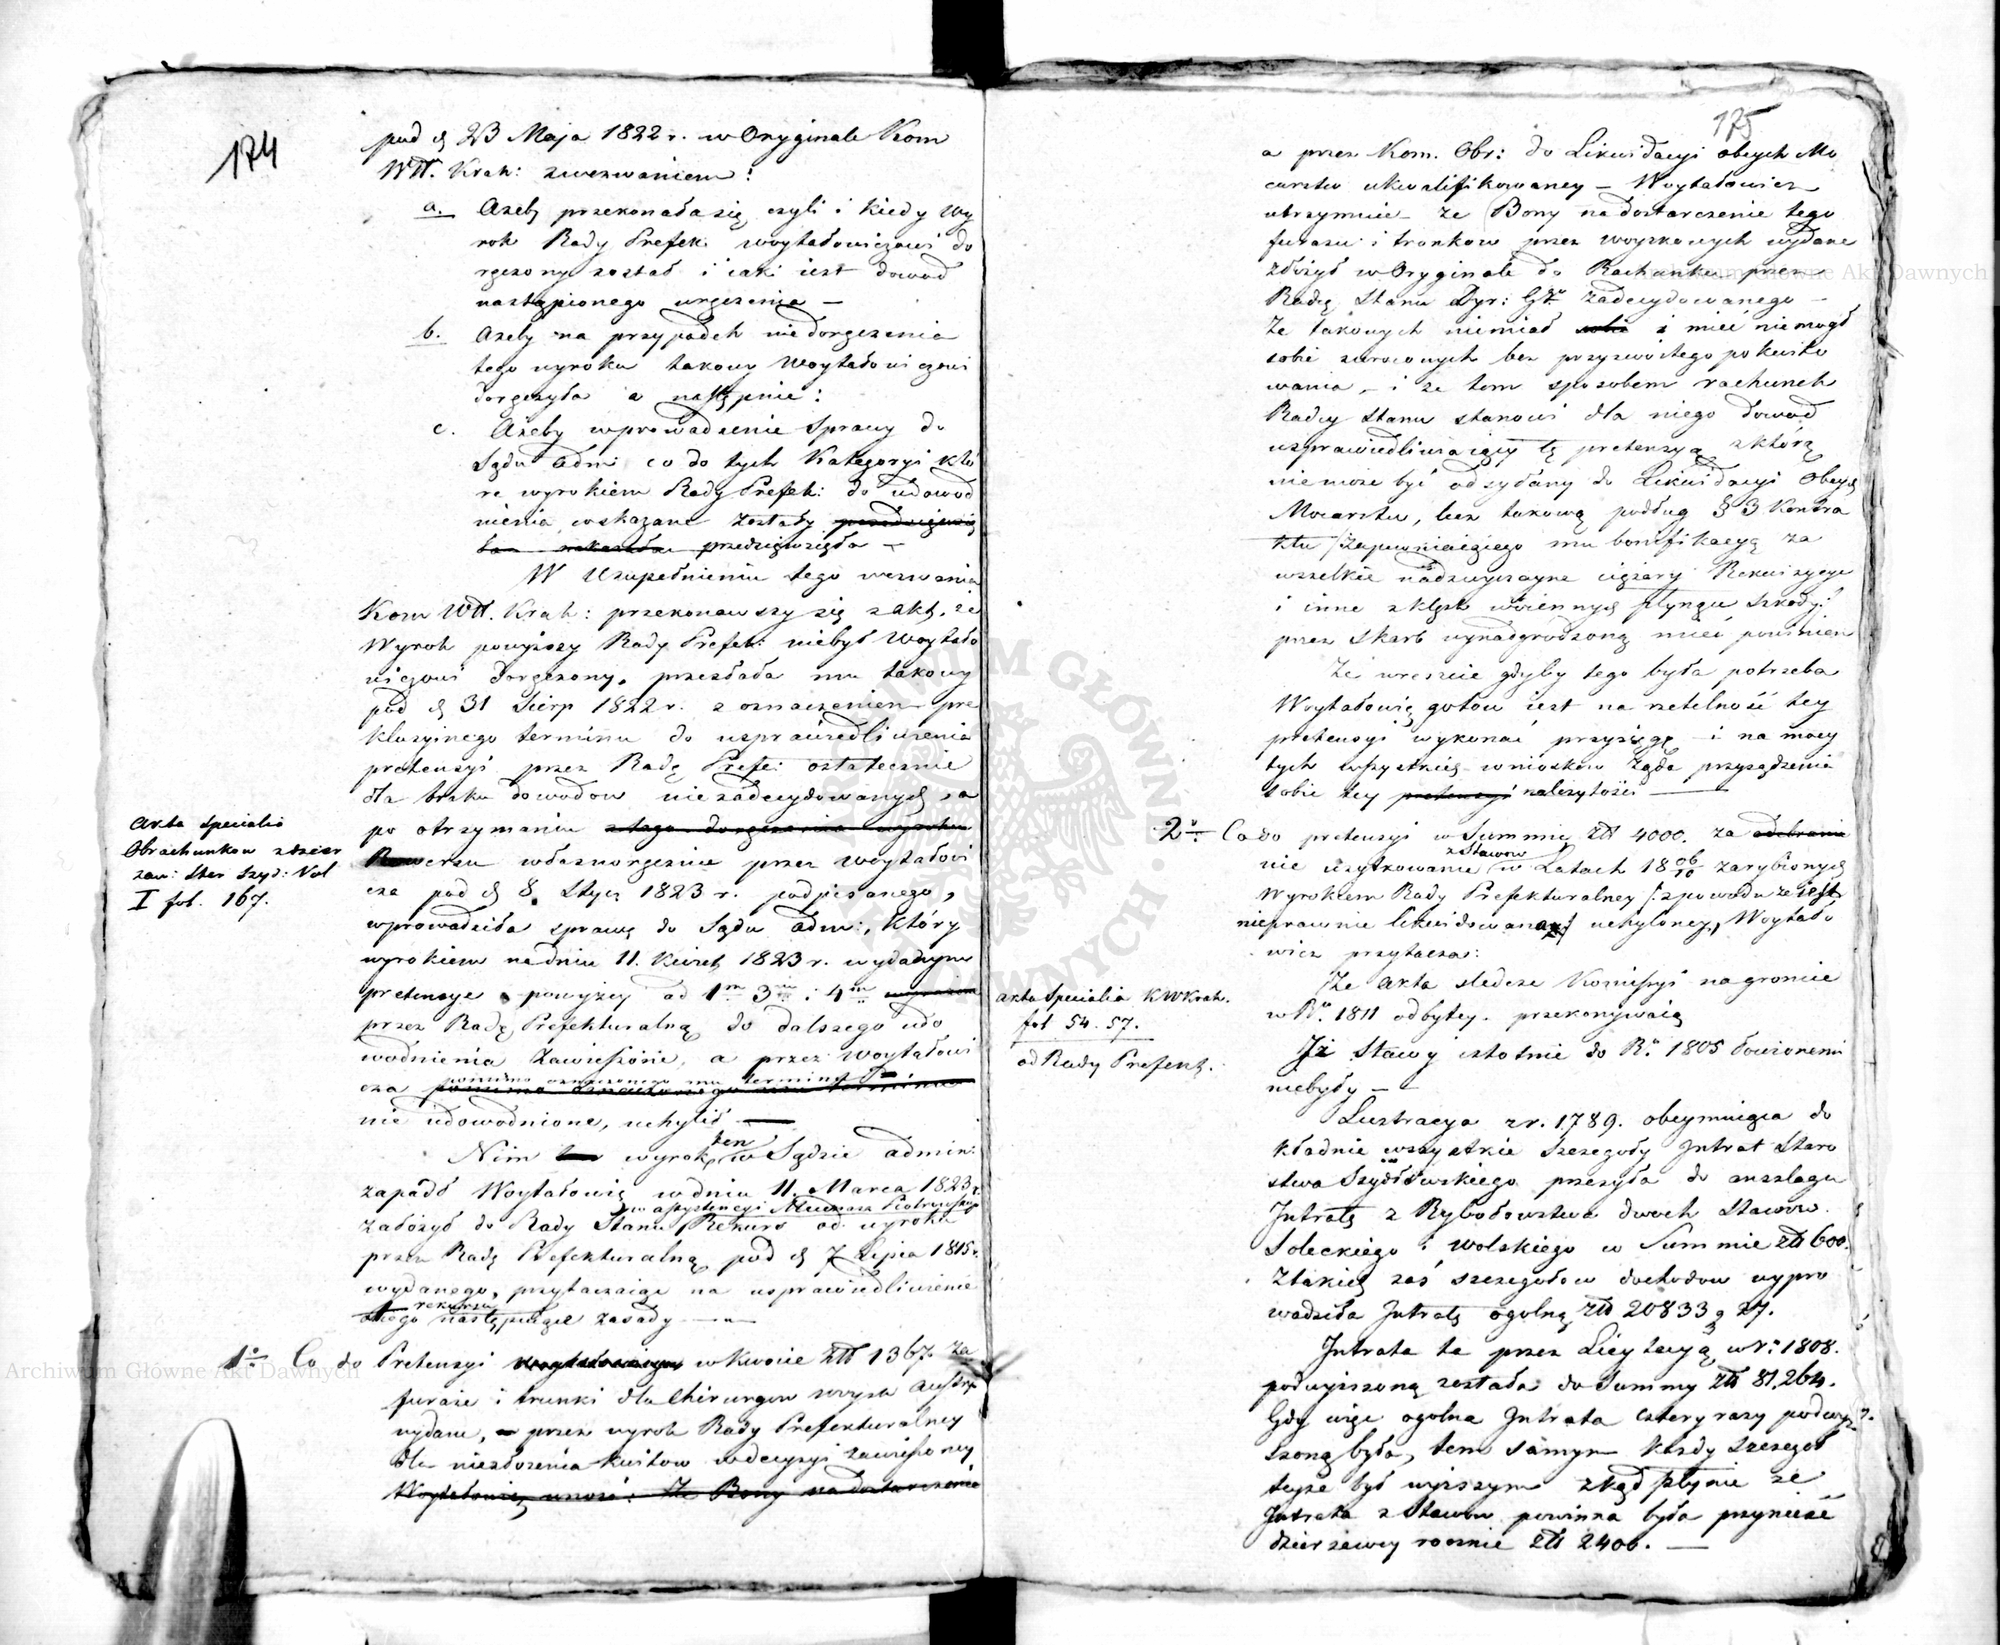 174
pod d 23 Maja 1822 r. w Oryginale Kom
Wtt. Krak: z wezwaniem:
a. Ażeby przekonała się, czyli i kiedy Wy
rok Rady Prefek: Woytałowiczowi do
ręczony został i iaki iest dowod
nastąpionego wręczenia —
b. Ażeby na przypadek niedoręczenia
tego wyroku takowy Woytałowiczowi
doręczyła a następnie:
c. Ażeby wprowadzenie Sprawy do
Sądu Adm: co do tych Kategoryi któ
re wyrokiem Rady Prefek: do udowod
nienia wskazane zostały
przedsięwzięła —
W Uzupełnieniu tego wezwania
Kom Wtt. Krak: przekonawszy się z akt, że
Wyrok powyższy Rady Prefek: niebył Woytało
wiczowi doręczony, przesłała mu takowy
pod d 31 Sierp 1822 r. z oznaczeniem pre
kluzyinego terminu do usprawiedliwienia
pretensyi przez Radę Prefe: ostatecznie
dla braku dowodow niezadecydowanych, a
po otrzymaniu z tego doręczenia wyroku
Rewersu własnoręcznie przez Woytałowi
cza pod d 8. Stycz 1823 r. podpisanego,
wprowadziła sprawę do Sądu adm:, który
wyrokiem na dniu 11. Kwiet 1823 r. wydanym
pretensye powyżey ad 1m 3m i 4m
przez Radę Prefekturalną do dalszego udo
wodnienia Zawieszone, a przez Woytałowi
cza pomimo oznaczonego mu terminu
nie udowodnione, uchylił —
Akta Specialia
Obrachunkow z dzier
zaw: Star Szyd: Vol
I fol. 167.
Nim ten wyrok w Sądzie admin:
zapadł Woytałowicz w dniu 11. Marca 1823 r.
w assystencyi Mecenasa Piotrowskiego
założył do Rady Stanu Rekurs od wyroku
przez Radę Prefekturalną pod d 7 Lipca 1815 r.
wydanego, przytaczaiąc na usprawiedliwienie
rekursu następuiące zasady —
1o Co do Pretensyi w kwocie Ztt 1367. za
furaże i trunki dla Chirurgow woysk Austry
wydane, przez wyrok Rady Prefekturalney
dla niezłożenia kwitow w decyzyi zawieszoney
Woytałowicz wnosi: że Bony na dostarczenie
175
a przez Kom. Obr: do Likwidacyi obcych Mo
carstw ukwalifikowaney — Woytałowicz
utrzymuie że Bony na dostarczenie tego
furażu i trunkow przez woyskowych wydane
złożył w Oryginale do Rachunku przez
Radcę Stanu Dyr: Gł. zadecydowanego —
że takowych niemiał i mieć niemogł
sobie zwroconych bez przyzwoitego pokwito
wania — i że tem sposobem rachunek
Radcy Stanu stanowi dla niego dowod
usprawiedliwiaiący tę pretensyą z którą
niemoże być odsyłany do Likwidacyi Obcych
Mocarstw, lecz takową podług § 3 Kontra
ktu Zapewniaiącego mu bonifikacyą za
wszelkie nadzwyczayne ciężary Rekwizycye
i inne z klęsk woiennych płynące szkody
przez Skarb wynadgrodzoną mieć powinien
Że wreszcie gdyby tego była potrzeba
Woytałowicz gotow iest na rzetelność tey
pretensyi wykonać przysięgę — i na mocy
tych wszystkich wniosków żąda przysądzenia
sobie tey należytości —
2o Co do pretensyi w Summie Ztt 4000. za
nie użytkowanie z Stawow w Latach 18 06/10 zarybionych
Wyrokiem Rady Prefekturalney /: z powodu że iest
nieprawnie likwidowana :/ uchyloney, Woytało
wicz przytacza:
Że akta śledcze Komissyi na groncie
w Ru. 1811 odbytey. przekonywaią
akta Specialia KWKrak.
fol 54. 57.
od Rady Prefekt.
Iż Stawy istotnie do Ru 1805 łowionemi
niebyły —
Lustracya z r. 1789. obeymuiąca do
kładnie wszystkie szczegoły Intrat Staro
stwa Szydłowskiego przesyła do anszlagu
Intratę z Rybołowstwa dwoch Stawow.
Soleckiego i Wolskiego w Summie Ztt 600.
Z takich zaś szczegołow dochodow wypro
wadziła Intratę ogolną Ztt 20833 g 27.
Intrata ta przez Licytacyą w r: 1808.
podwyższoną została do Summy Ztt 81,264.
Gdy więc ogolna Intrata cztery razy podwyż
szoną była, tem samym każdy szczegoł
teyże był wyższym zkąd płynie że
Intrata z Stawow powinna była przynieść
dzierżawcy rocznie Ztt 2400. —
Archiwum Główne Akt Dawnych
Archiwum Główne Akt Dawnych
ARCHIWUM GŁÓWNE AKT DAWNYCH